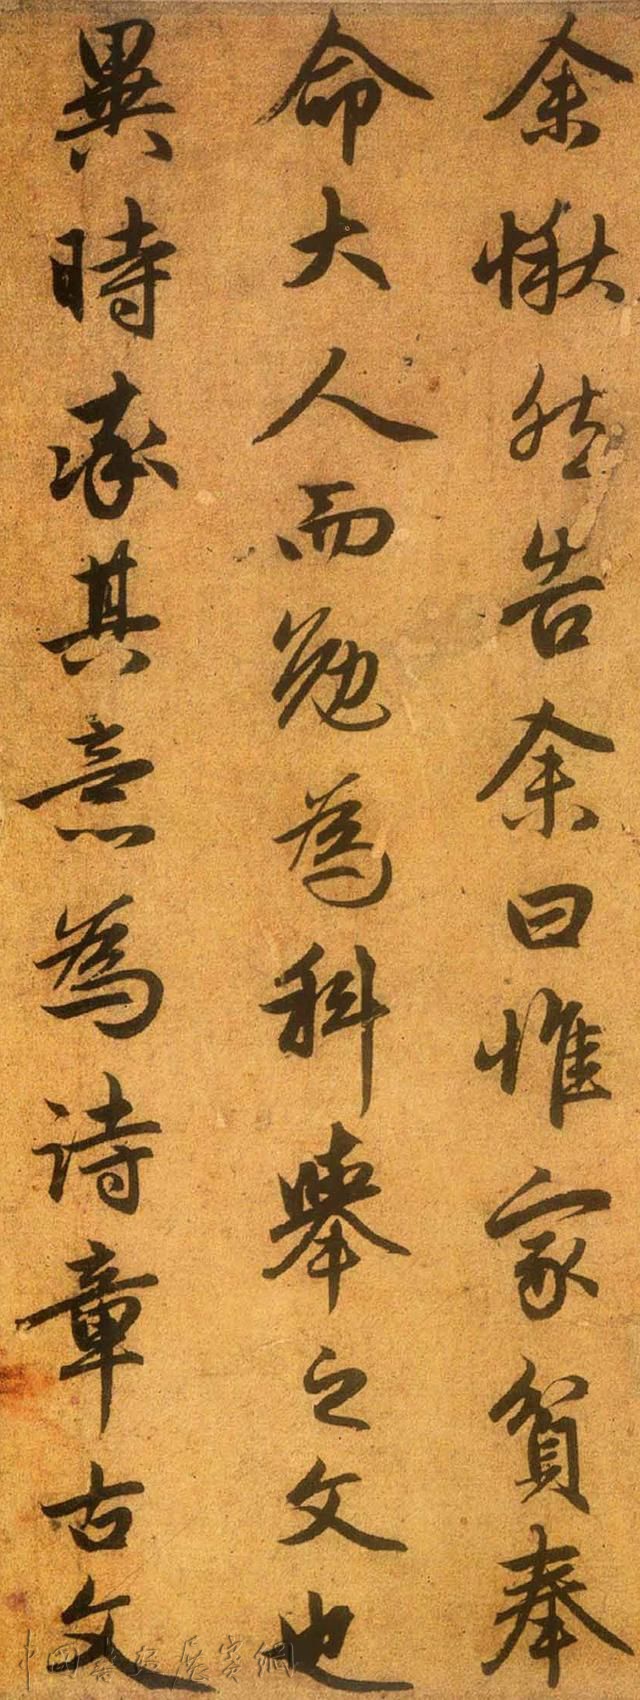 余愀然告余曰惟家貧奉
命大人而勉為科舉之文也
異時率其意為詩章古文
中國書法展賽網